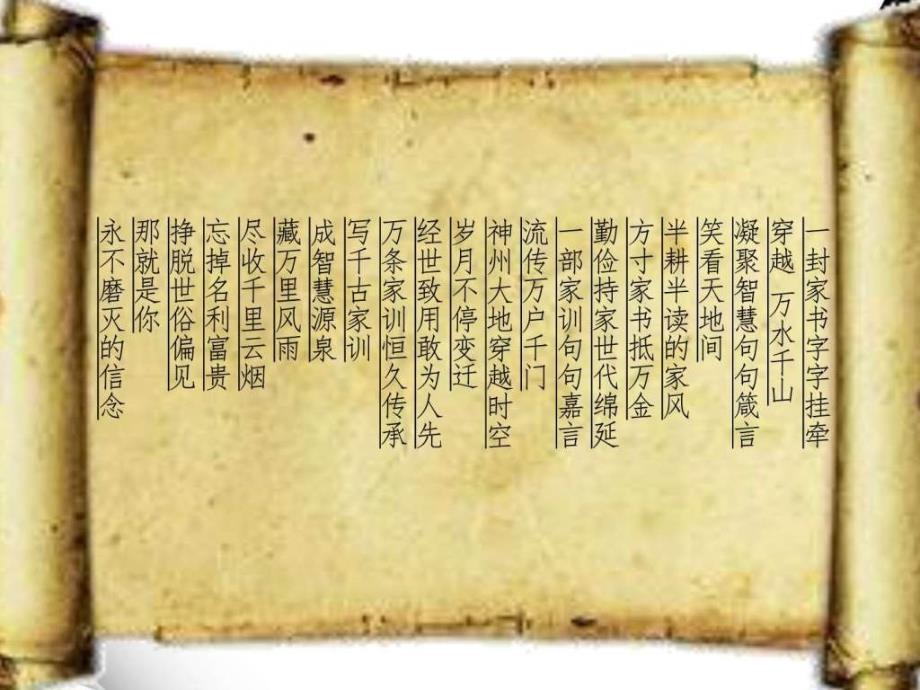 一封家书字字挂牵
穿越 万水千山
凝聚智慧句句箴言
笑看天地间
半耕半读的家风
方寸家书抵万金
勤俭持家世代绵延
一部家训句句嘉言
流传万户千门
神州大地穿越时空
岁月不停变迁
经世致用敢为人先
万条家训恒久传承
写千古家训
成智慧源泉
藏万里风雨
尽收千里云烟
忘掉名利富贵
挣脱世俗偏见
那就是你
永不磨灭的信念